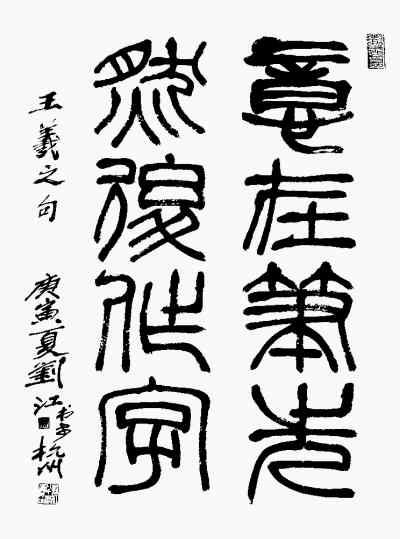 意在筆先
然後作字
王羲之句
庚寅夏劉江書于杭州